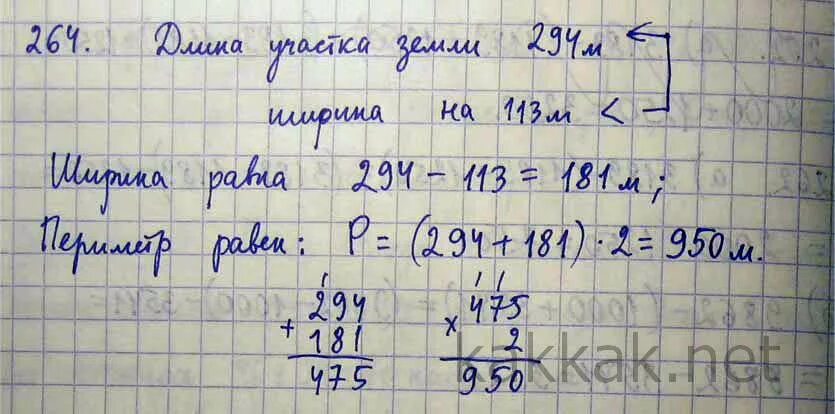 264. Длина участка земли 294м
ширина на 113м <
Ширина равна 294 - 113 = 181м;
Периметр равен: P = (294 + 181) · 2 = 950м.
1
294
+
181
475
1 1
475
x
2
950
kakkak.net